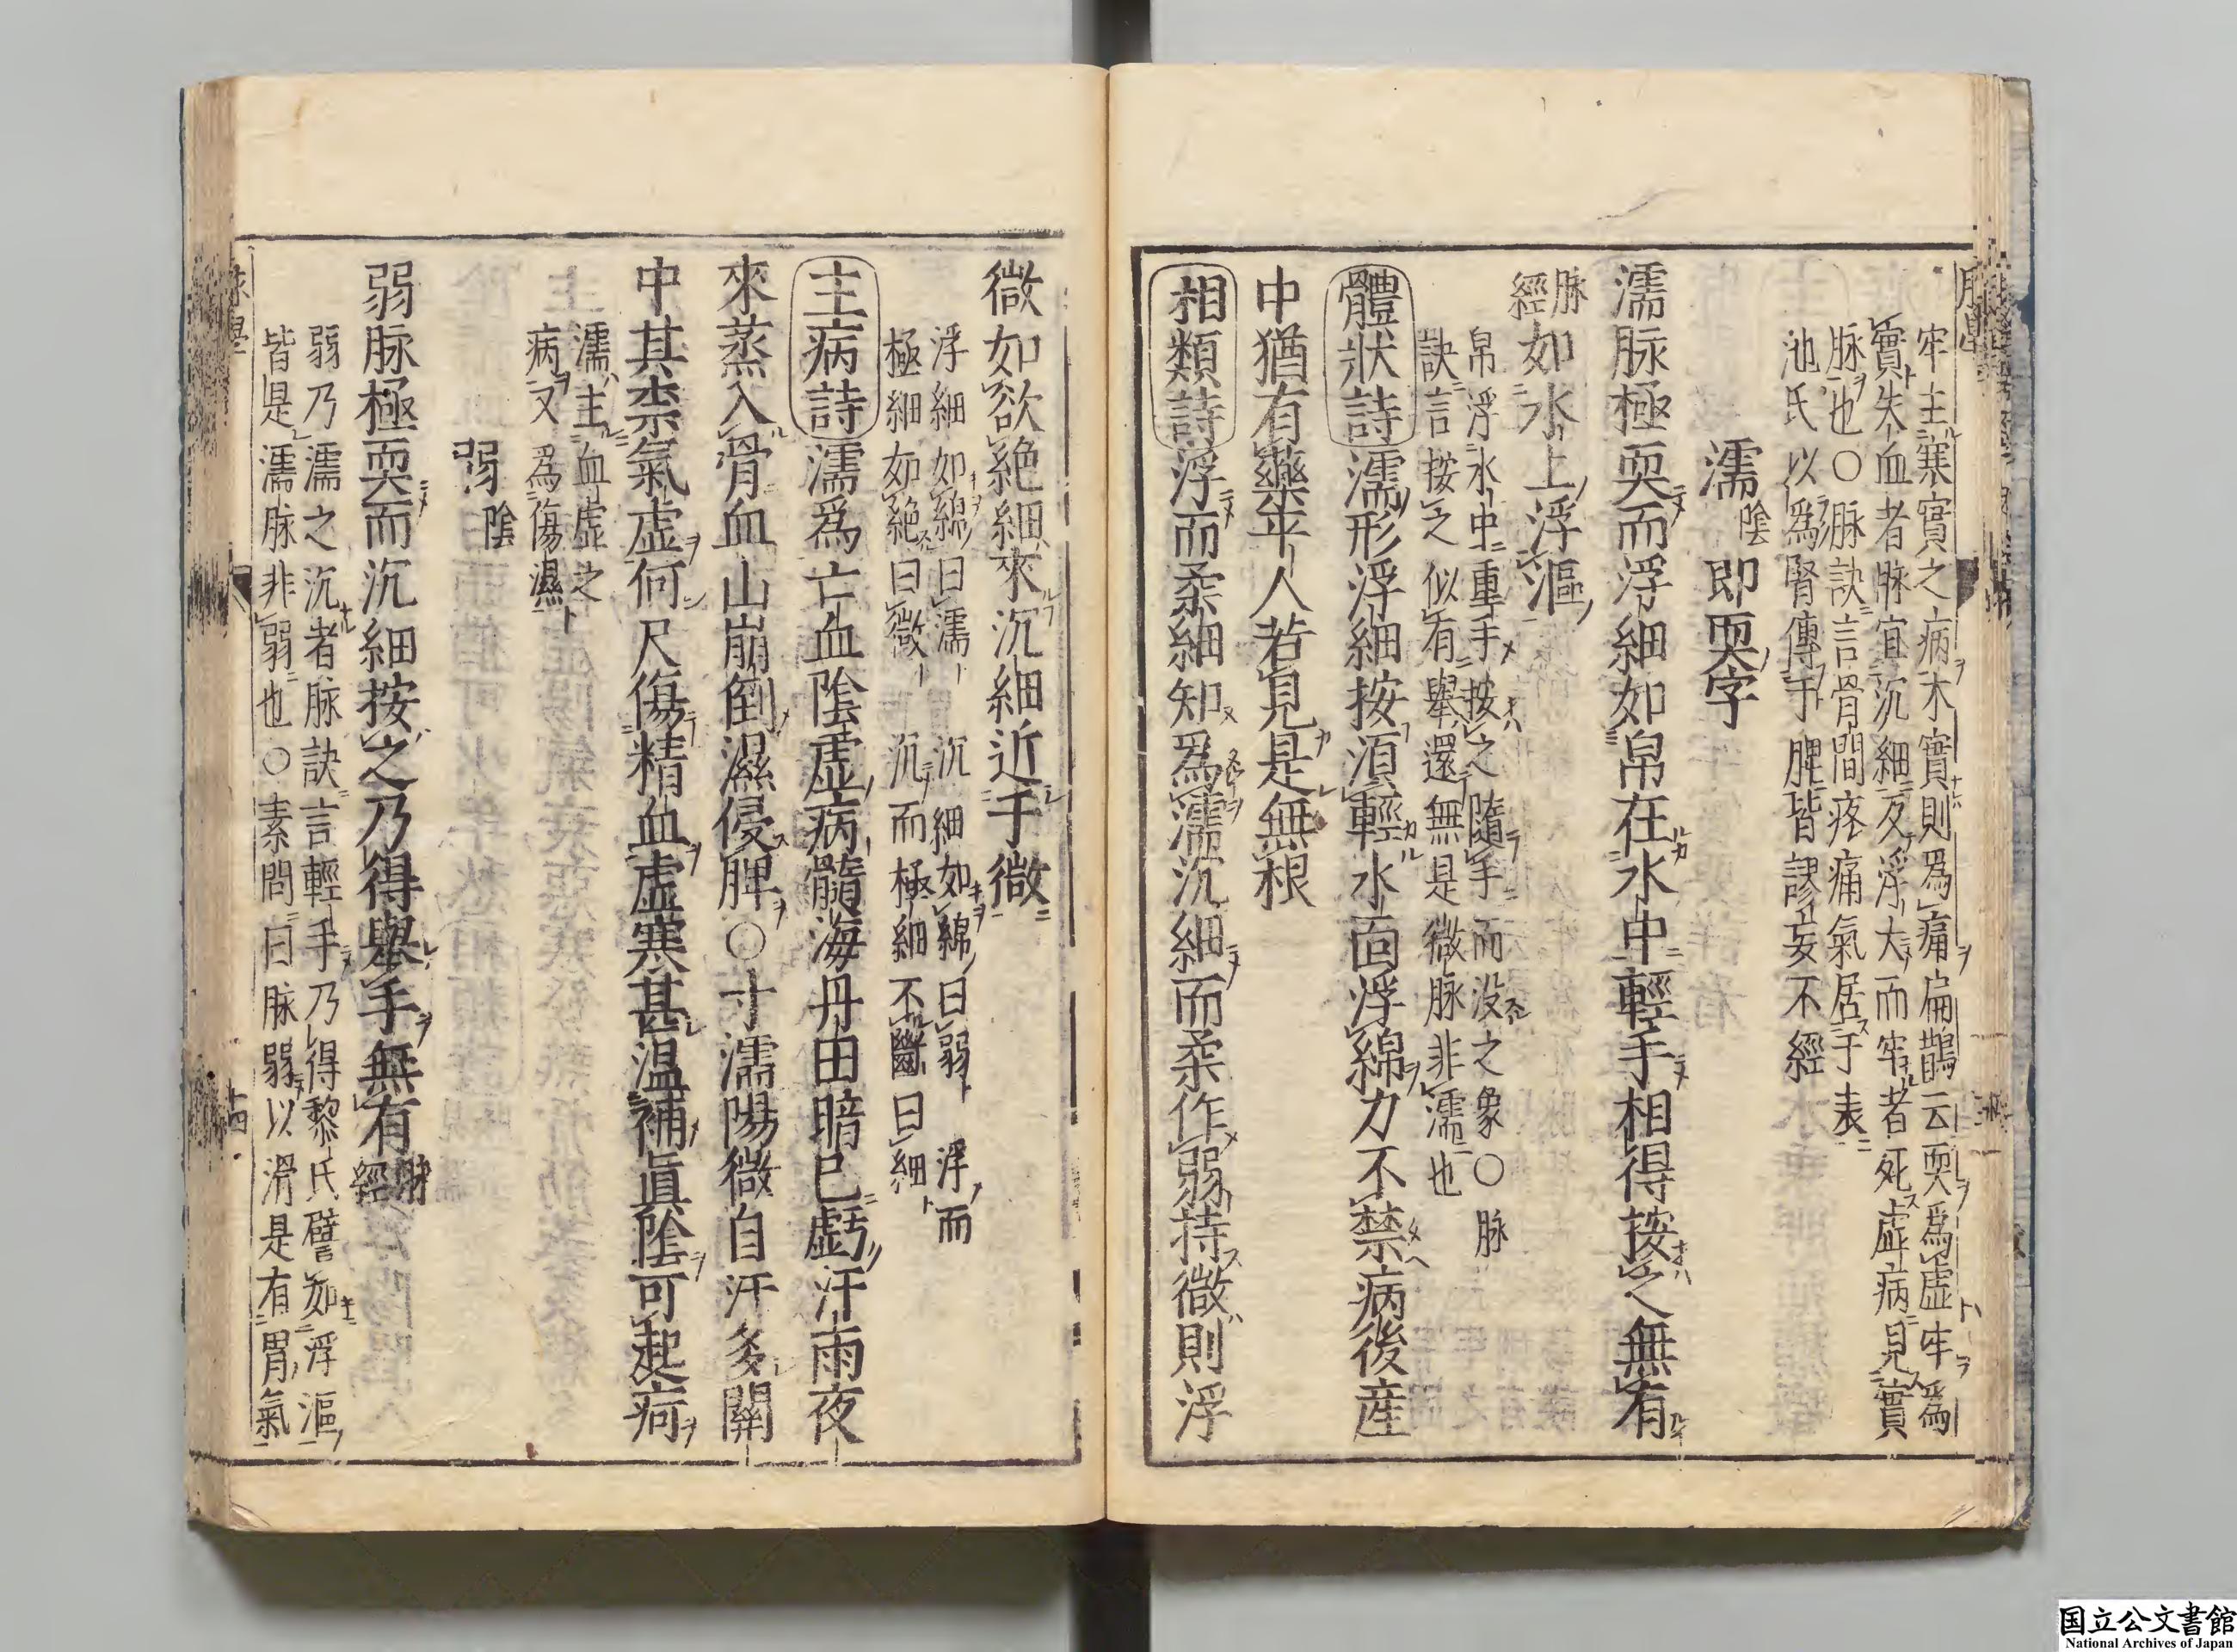 牢主寒實之病木實則爲痛扁鵲云耎爲虚牢爲
實失血者脉宜沉細反浮大而牢者死虚病見實
脉也〇脉訣言骨間疼痛氣居于表
池氏以爲腎傳于脾皆謬妄不經
濡陰即耎字
濡脉極耎而浮細如帛在水中輕手相得按之無有
脉經如水上浮漚
帛浮水中重手按之隨手而没之象〇脉
訣言按之似有舉還無是微脉非濡也
體狀詩濡形浮細按須輕水靣浮綿力不禁病後産
中猶有藥平人若見是無根
相類詩浮而柔細知爲濡沉細而柔作弱持微則浮
微如欲絶細來沉細近于微
浮細如綿曰濡沉細如綿曰弱浮而
極細如絶曰微沉而極細不斷曰細
主病詩濡爲亡血陰虚病髓海丹田暗已虧汗雨夜
來蒸入骨血山崩倒濕侵脾〇寸濡陽微自汗多關
中其柰氣虚何尺傷精血虚寒甚温補眞陰可起疴
濡主血虚之
病又爲傷濕
弱陰
弱脉極耎而沉細按之乃得舉手無有脉經
弱乃濡之沉者脉訣言輕手乃得黎氏譬如浮漚
皆是濡脉非弱也〇素問曰脉弱以滑是有胃氣
十四
国立公文書館
National Archives of Japan